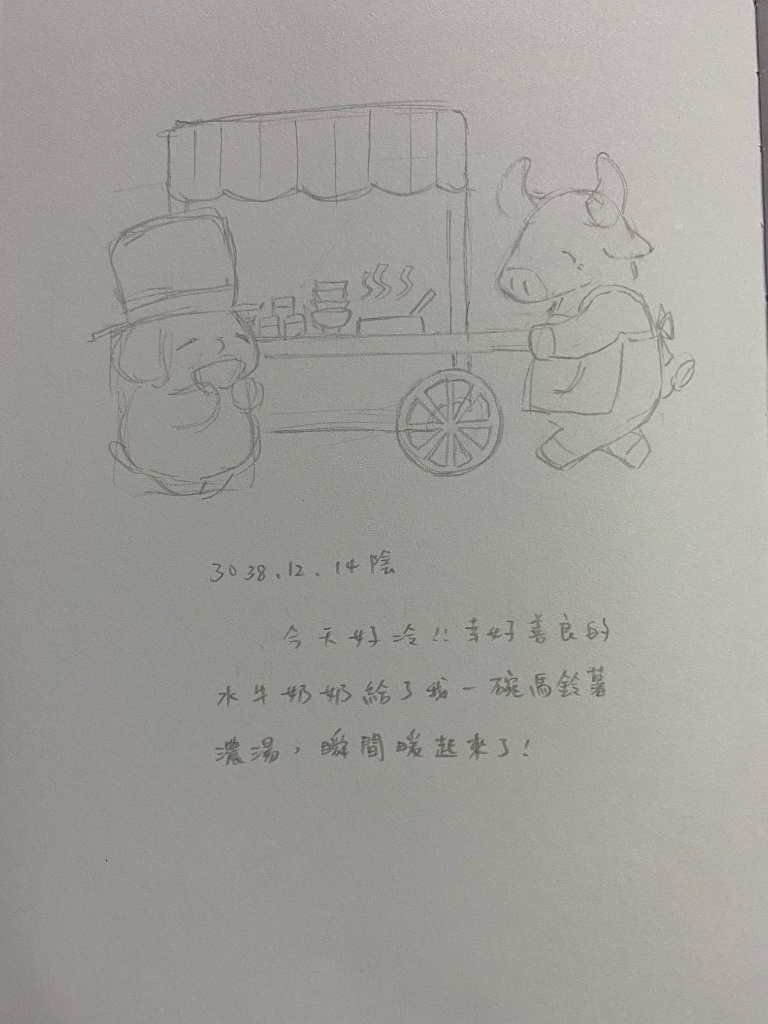 3038.12.14 陰
今天好冷!!幸好善良的
水牛奶奶給了我一碗馬鈴薯
濃湯，瞬間暖起來了!